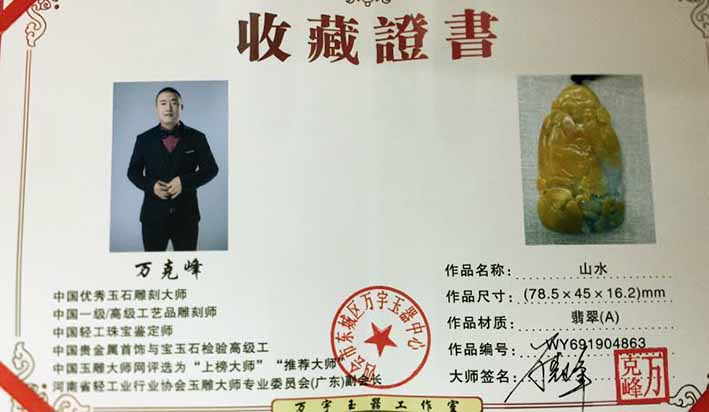 收藏證書
万克峰
中国优秀玉石雕刻大师
中国一级/高级工艺品雕刻师
中国轻工珠宝鉴定师
中国贵金属首饰与宝玉石检验高级工
中国玉雕大师网评选为“上榜大师”“推荐大师”
河南省轻工业行业协会玉雕大师专业委员会(广东)副会长
四会市东城区万宇玉器中心
作品名称：山水
作品尺寸：(78.5×45×16.2)mm
作品材质：翡翠(A)
作品编号：WY691904863
大师签名：万克峰
万克峰
万宇玉器工作室